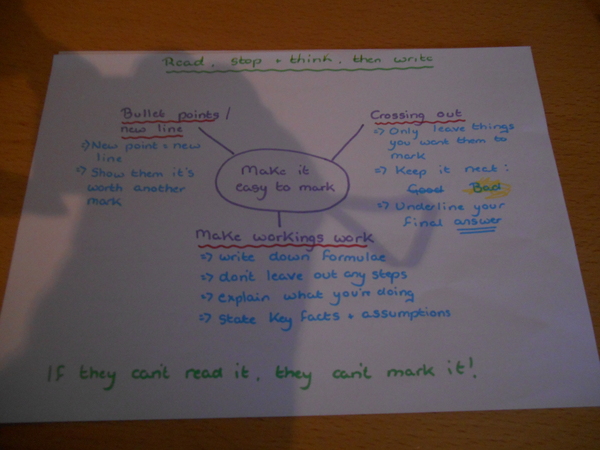 Read, stop + think, then write
Bullet points /
new line
=> New point = new
line
=> Show them it's
worth another
mark
Crossing out
=> Only leave things
you want them to
mark
=> Keep it neat:
Good Bad
=> Underline your
final answer
Make it
easy to mark
Make workings work
=> write down formulae
=> don't leave out any steps
=> explain what you're doing
=> State key facts + assumptions
If they can't read it, they can't mark it!